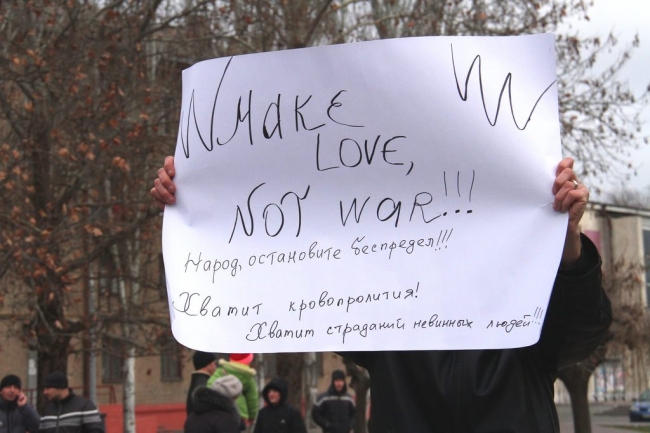 MAKE
LOVE,
NOT WAR!!!
Народ, остановите беспредел!!!
Хватит кровопролития!
Хватит страданий невинных людей!!!